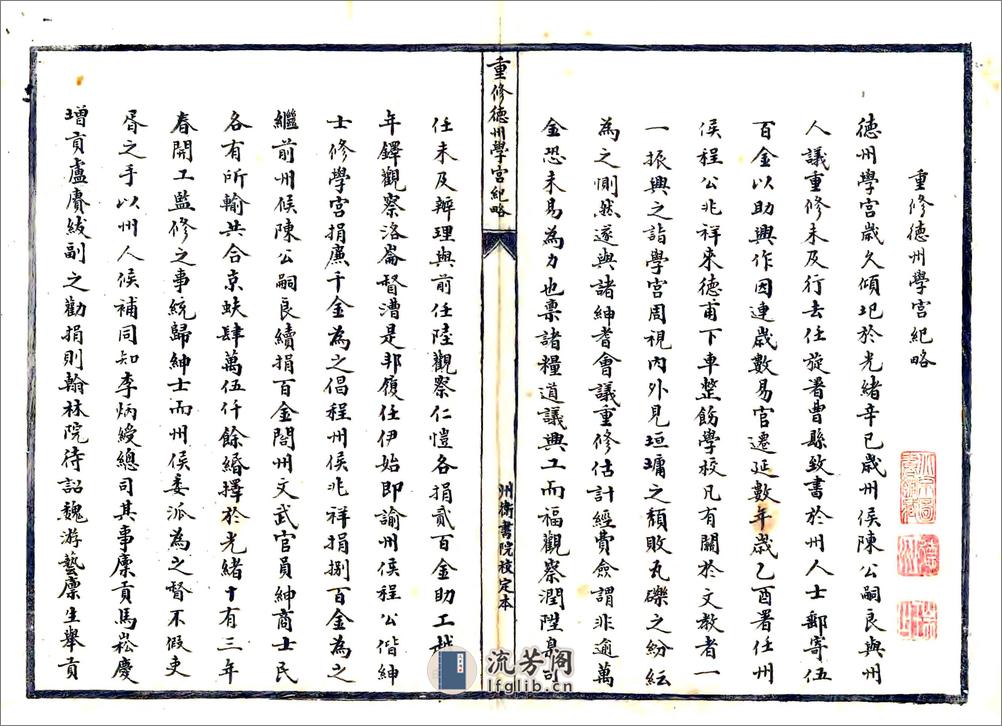 重修德州學宮紀略
德州學宮歲久傾圯於光緒辛巳歲州侯陳公嗣良與州
人議重修未及行去任旋署曹縣致書於州人士郵寄伍
百金以助興作因連歲數易官遷延數年歲乙酉署任州
侯程公兆祥來德甫下車整飭學校凡有關於文教者一
一振興之詣學宮周視內外見垣墉之頹敗瓦礫之紛紜
為之惻然遂與諸紳耆會議重修估計經費僉謂非逾萬
金恐未易為力也稟諸糧道議興工而福觀察潤陞臬司
重修德州學宮紀略
州衛書院校定本
任未及辦理與前任陸觀察仁愷各捐貳百金助工越
年鐸觀察洛崙督漕是邦履任伊始即諭州侯程公偕紳
士修學宮捐廉千金為之倡程州侯兆祥捐捌百金為之
繼前州候陳公嗣良續捐百金閤州文武官員紳商士民
各有所輸共合京蚨肆萬伍仟餘緡擇於光緒十有三年
春開工監修之事統歸紳士而州侯委派為之督不假吏
胥之手以州人候補同知李炳綬總司其事廩貢馬崧慶
增貢盧賡紱副之勸捐則翰林院待詔魏游藝廩生舉貢
流芳閣
lfglib.cn